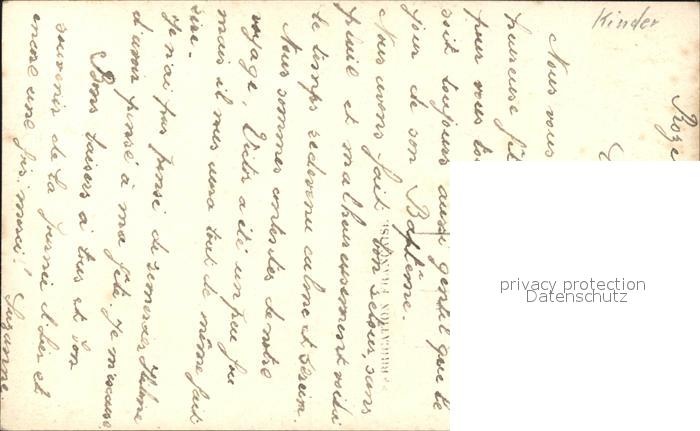 Kinder
Roze
Nous vous
heureuse fêt
pour vous to
soit toujours aussi gentil que le
jour de son Baptême.
Nous avons fait bon retour, sans
pluie et malheureusement voilà
le temps redevenu calme et serein.
Nous sommes contentes de notre
voyage, Victor a été un peu fou
mais il nous aura tout de même fait
rire.
Je n'ai pas pensé de remercier
d'avoir pensé à ma fête je m'excuse
Bons baisers à tous et bon
souvenir de la journée d'hier et
encore une fois merci! Suzanne
privacy protection
Datenschutz